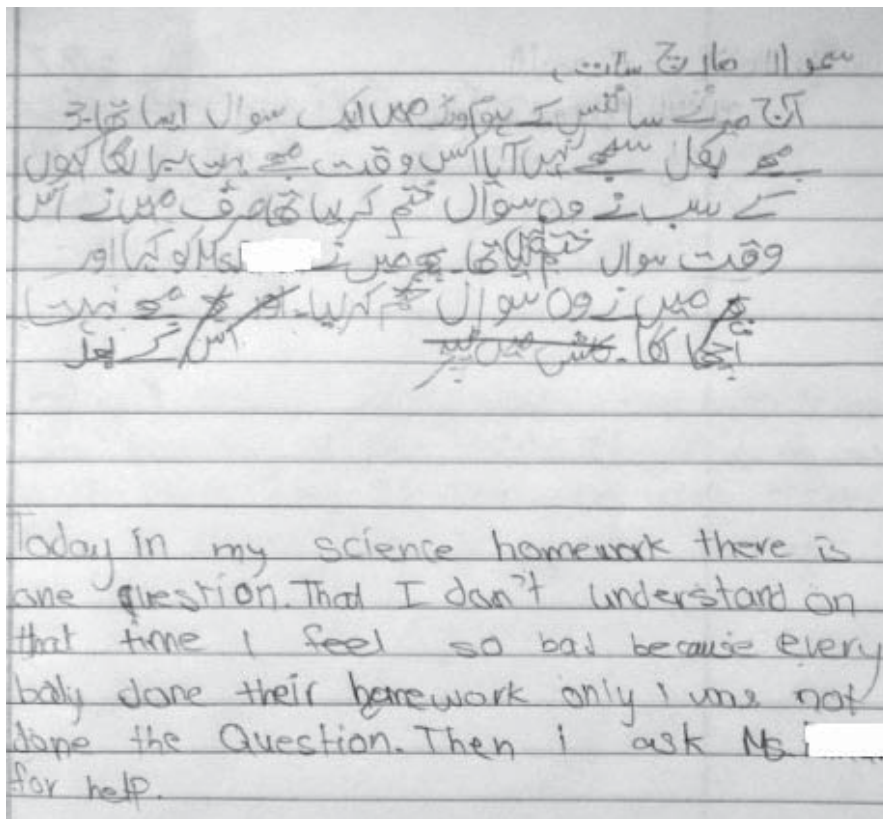 سموار مارچ سات،
آج میرے سائنس کے ہوم ورک میں ایک سوال ایسا تھا جو
مجھے بلکل سمجھ نہیں آیا اس وقت مجھے بہت برا لگا کیوں
کے سب نے ون سوآل ختم کر لیا تھا صرف میں نے اس
وقت سوال ختم نہیں کیا تھا۔ پھر میں نے Ms. کو کہا اور
میں نے ون سوال ختم کر لیا۔ مجھے بہت
اچھا لگا۔ اس کے بعد
Today in my science homework there is
one question. That I don't understand on
that time I feel so bad because every
body done their homework only i was not
done the Question. Then i ask Ms.
for help.